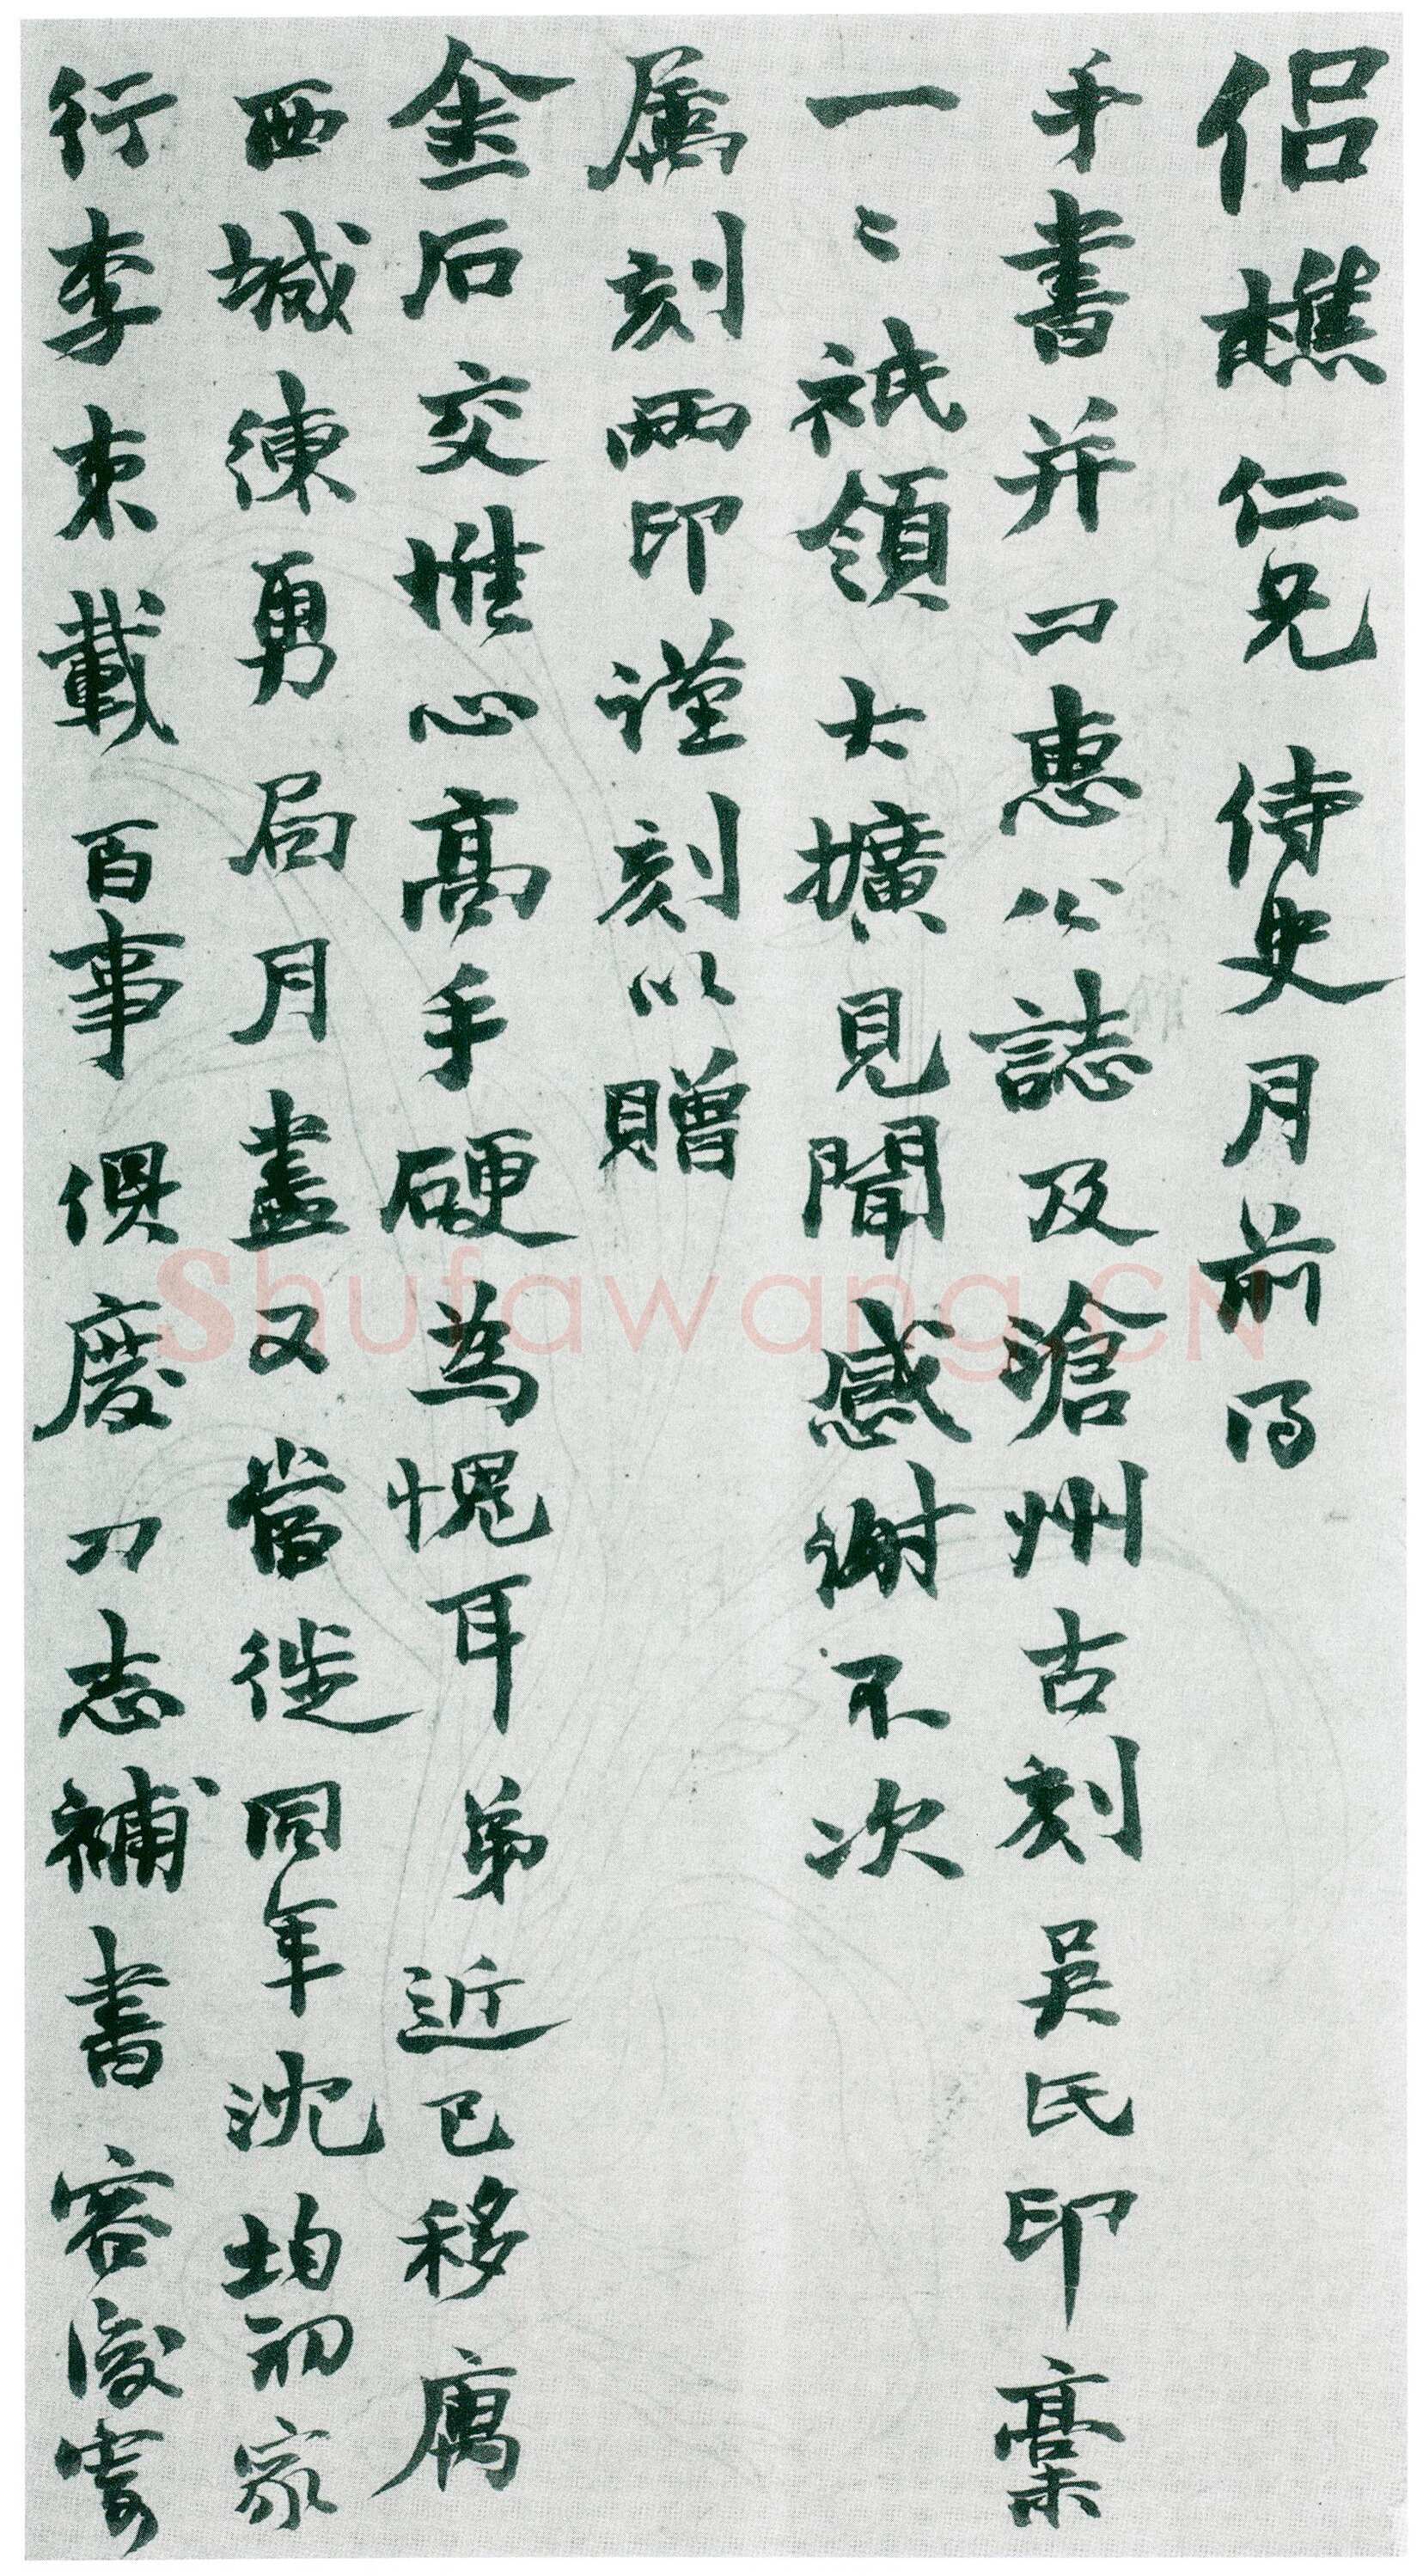 侣樵仁兄侍史月前得
手書并刁惠公誌及滄州古刻吳氏印稾
一〻祇領大擴見聞感謝不次
属刻兩印謹刻以贈
金石交惟心高手硬為愧耳弟近已移寓
西城練勇局月盡又當徙同年沈均初家
行李束載百事俱廢刁志補書容後寄
Shufawang.CN